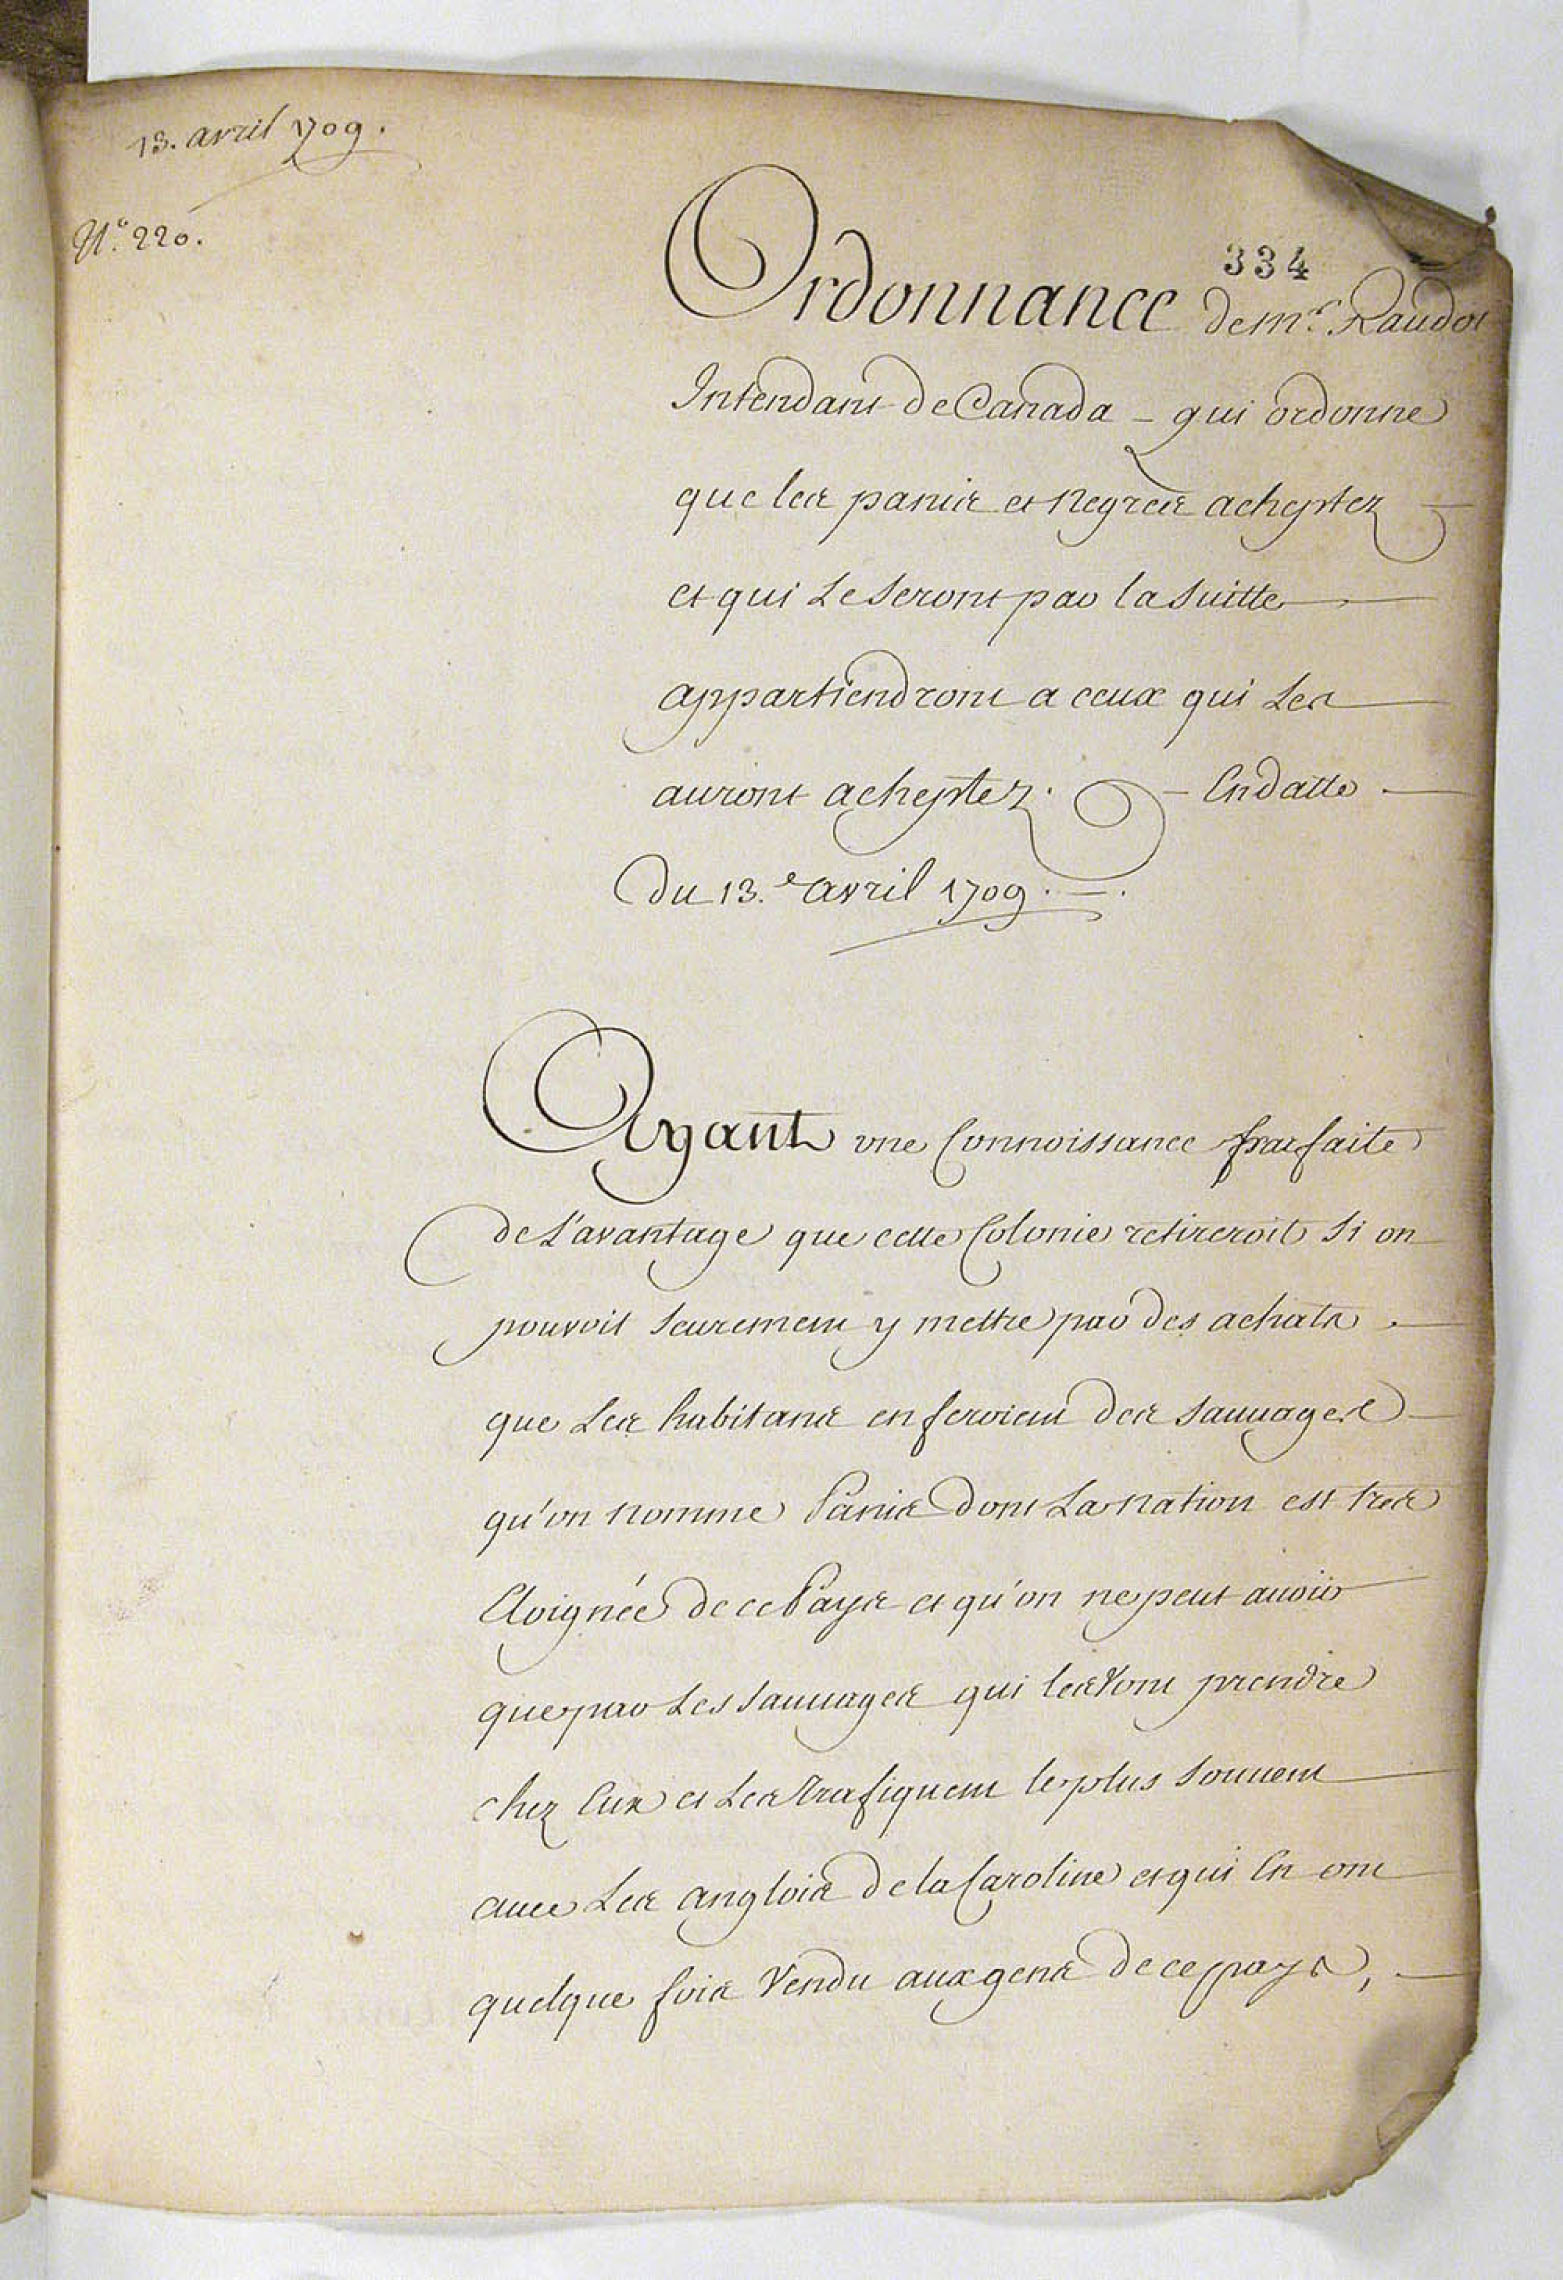 13. avril 1709.
N.o 220.
334
Ordonnance de m.r Raudot
Intendant de Canada - qui ordonne
que les panis et negres acheptez
et qui le seront par la suitte
appartiendront a ceux qui les
auront acheptez. - En datte
du 13.e avril 1709. -.
Ayant une Connoissance parfaite
de l'avantage que cette Colonie retireroit si on
pouvoit seurement y mettre par des achats
que les habitans en feroient des sauvages
qu'on nomme Panis dont La nation est tres
Eloignée de ce Pays et qu'on ne peut avoir
que par les sauvages qui les vont prendre
chez Eux et les trafiquent le plus souvent
avec les anglois de la Caroline et qui En ont
quelque fois vendu aux gens de ce pays,